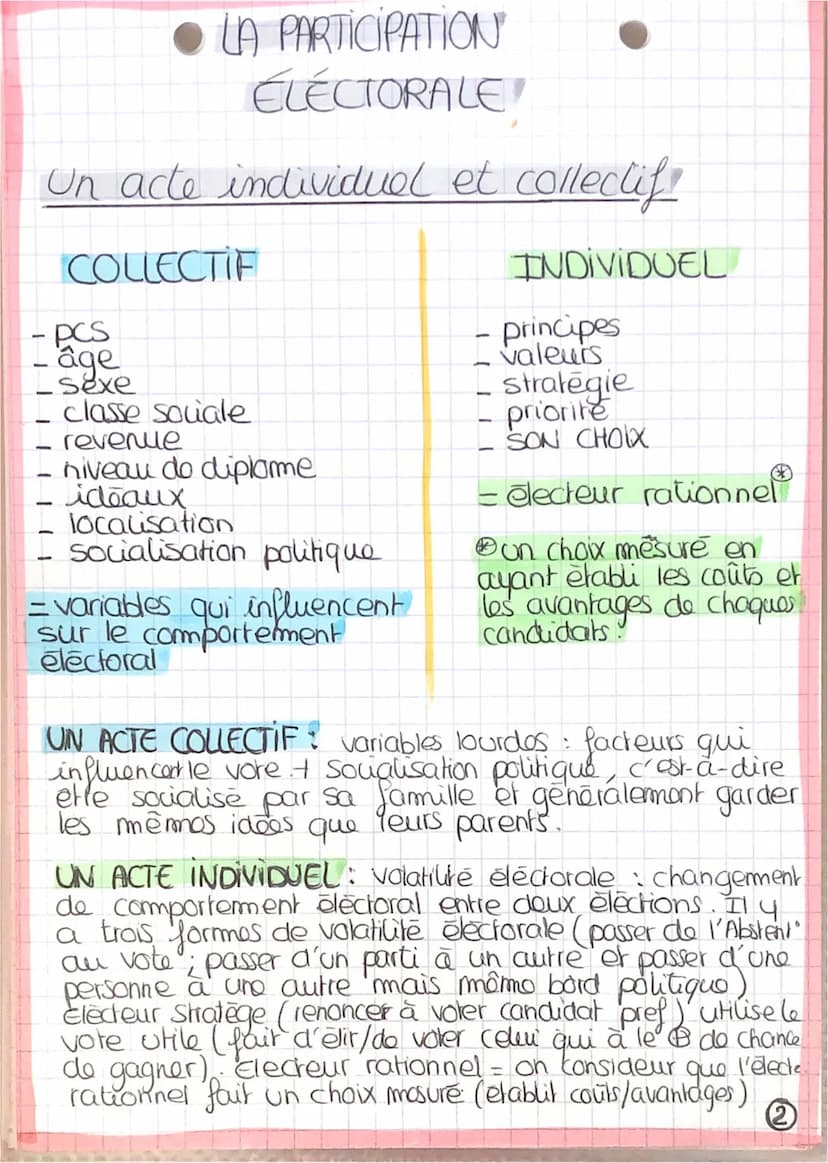 LA PARTICIPATION
ÉLÉCTORALE
Un acte individuel et collectif
COLLECTIF
- PCS
- âge
- sexe
- classe sociale
- revenue
- niveau de diplome
- idéaux
- localisation
- socialisation politique
= variables qui influencent
sur le comportement
éléctoral
INDIVIDUEL
- principes
- valeurs
- stratégie
- priorité
- SON CHOIX
= électeur rationnel *
* un choix mésuré en
ayant établi les coûts et
les avantages de chaques
candidats.
UN ACTE COLLECTIF : variables lourdes : facteurs qui
influencent le vote + socialisation politique, c'est-à-dire
être socialisé par sa famille et généralement garder
les mêmes idées que leurs parents.
UN ACTE INDIVIDUEL : volatilité éléctorale : changement
de comportement éléctoral entre deux éléctions. Il y
a trois formes de volatilité éléctorale (passer de l'Abstent°
au vote ; passer d'un parti à un autre et passer d'une
personne à une autre mais même bord politique)
Électeur stratège (renoncer à voter candidat pref) utilise le
vote utile (fait d'élir/de voter celui qui à le ⊕ de chance
de gagner). Électeur rationnel = on consideur que l'électe
rationnel fait un choix mesuré (etablit coûts/avantages)
2